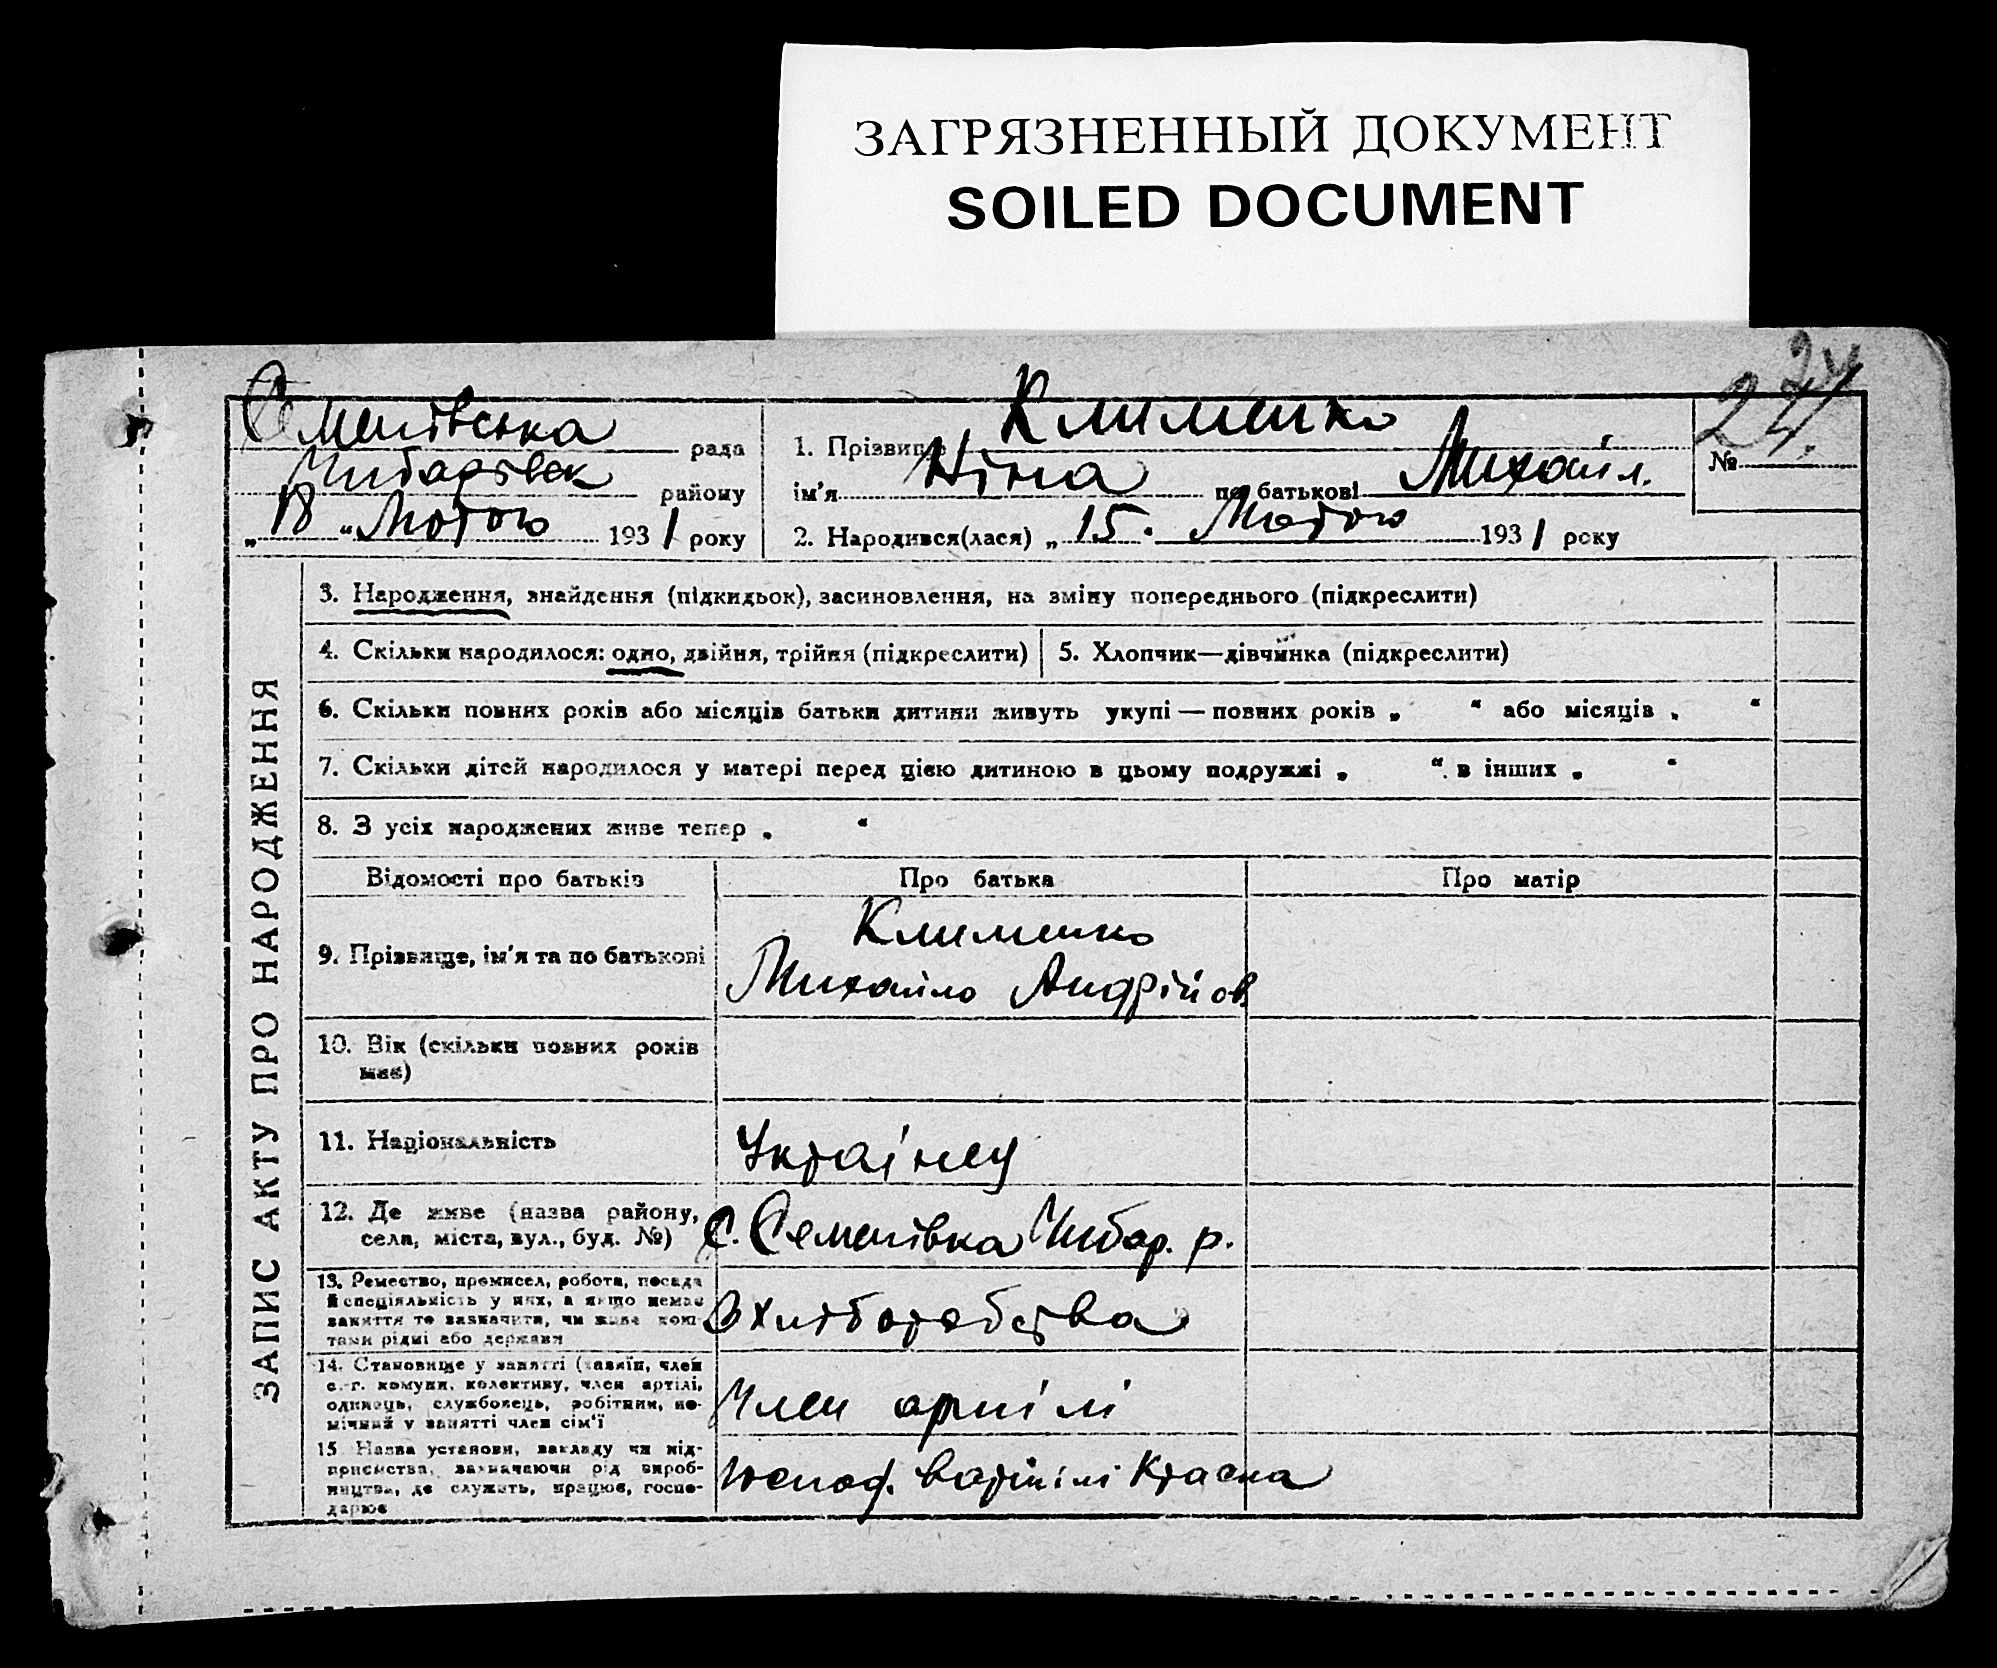 ЗАГРЯЗНЕННЫЙ ДОКУМЕНТ
SOILED DOCUMENT
Семенівська рада
Чубарівськ району
„18“ Лютого 1931 року
1. Прізвище Клименко
ім'я Ніна по батькові Михайл.
2. Народився(лася) „15. Лютого 1931 року
№ 24.
ЗАПИС АКТУ ПРО НАРОДЖЕННЯ
3. Народження, знайдення (підкидьок), засиновлення, на зміну попереднього (підкреслити)
4. Скільки народилося: одно, двійня, трійня (підкреслити)
5. Хлопчик—дівчинка (підкреслити)
6. Скільки повних років або місяців батьки дитини живуть укупі — повних років „ “ або місяців „ “
7. Скільки дітей народилося у матері перед цією дитиною в цьому подружжі „ “. в інших „ “
8. З усіх народжених живе тепер „ “
Відомості про батьків
Про батька
Про матір
9. Прізвище, ім'я та по батькові
Клименко
Михайло Андрійов.
10. Вік (скільки повних років
має)
11. Національність
Українец
12. Де живе (назва району,
села, міста, вул., буд. №)
С. Семенівка Чубар. р.
13. Ремество, промисел, робота, посада
й спеціяльність у них, а якщо немає
заняття то зазначити, чи живе кош-
тами рідні або держави
З хліборобства
14. Становище у занятті (хазяїн, член
с.-г. комуни, колективу, член артілі,
одинець, службовець, робітник, по-
мічний у занятті член сім'ї
Член артілі
15. Назва установи, закладу чи під-
приємства, зазначаючи рід вироб-
ництва, де служить, працює, госпо-
дарює
в артілі Красна